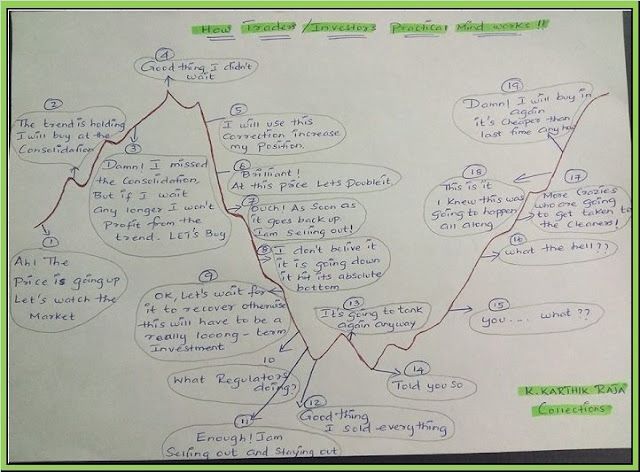 How Trader/Investors Practical Mind works!!
1
Ah! The
Price is going up
Let's watch the
Market
2
The trend is holding
I will buy at the
Consolidation
3
Damn! I missed
the Consolidation,
But if I wait
any longer I won't
Profit from the
trend. LET'S Buy
4
Good thing I didn't
wait
5
I will use this
Correction increase
my Position.
6
Brilliant!
At this price Lets Double it
7
Ouch! As soon as
it goes back up
Iam selling out!
8
I don't belive it
it is going down
it hit its absolute
bottom
9
OK, Let's wait for
it to recover otherwise
this will have to be a
really looong - term
Investment
10
What Regulators
doing?
11
Enough! Iam
Selling out and Staying out
12
Good thing
I sold everything
13
It's going to tank
again anyway
14
Told you so
15
you.... what??
16
what the hell??
17
More Crazies
who are going
to get taken to
the cleaners!
18
This is it
I knew this was
going to happen
all along
19
Damn! I will buy in
again
it's cheaper than
last time anyhow
K. KARTHIK RAJA
Collections